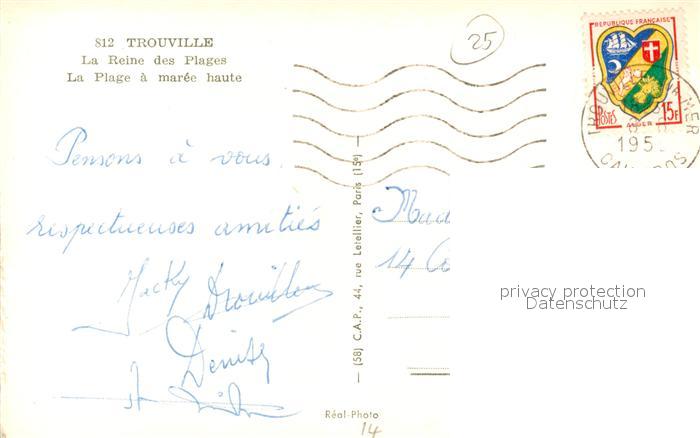 812 TROUVILLE
La Reine des Plages
La Plage à marée haute
25
REPUBLIQUE FRANÇAISE
POSTES 15F
ALGER
195
CALVADOS
Pensons à vous.
respectueuses amitiés
Jacky
Denise
(58) C.A.P., 44, rue Letellier, Paris (15e)
Mad
14
privacy protection
Datenschutz
Réal-Photo
14